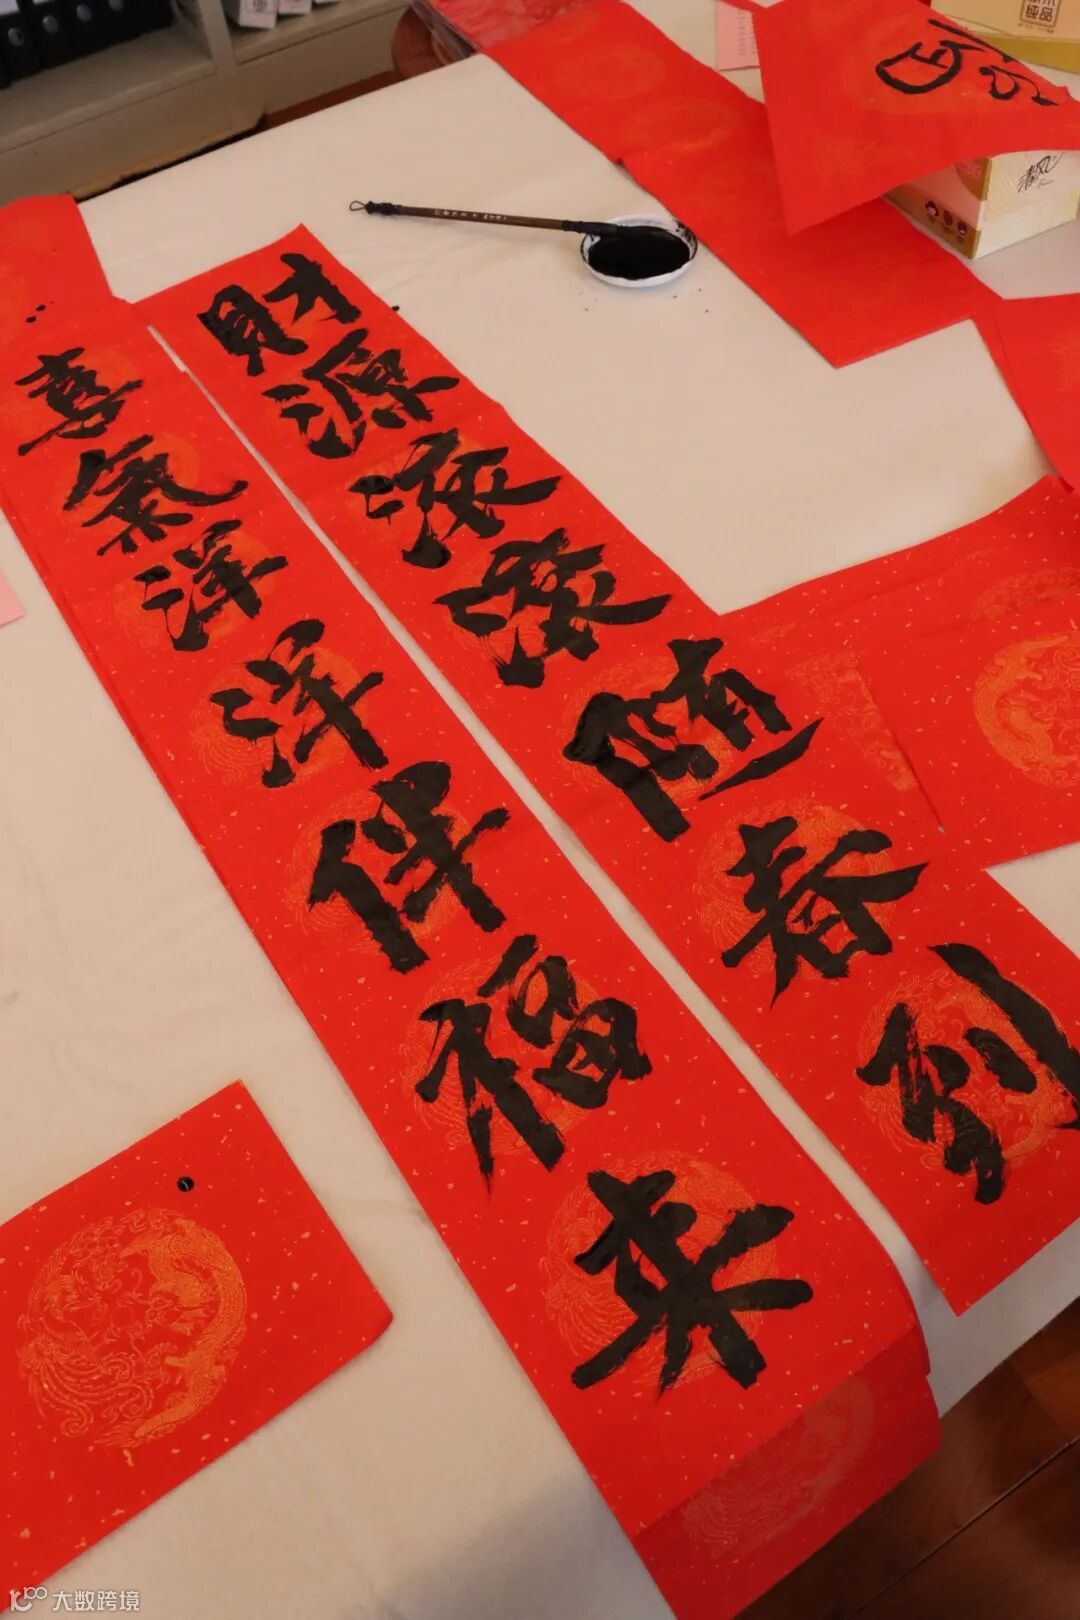 財源滚滚随春到
喜氣洋洋伴福来
清风
大数跨境